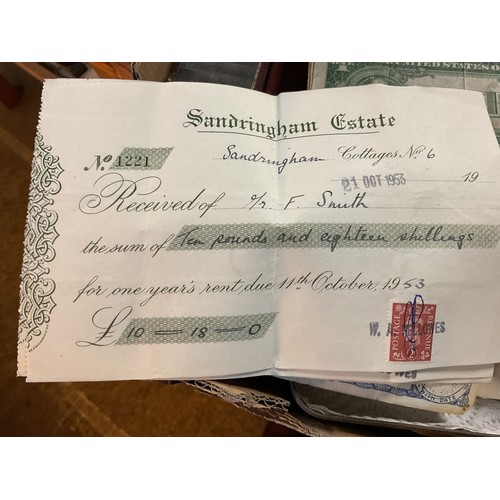 UNITED STATES OF
Sandringham Estate
No 1221
Sandringham Cottages No. 6
21 OCT 1953 19
Received of Mr. F. Smith
the sum of Ten pounds and eighteen shillings
for one year's rent, due 11th October, 1953
£ 10 — 18 — 0
W. A.
POSTAGE REVENUE